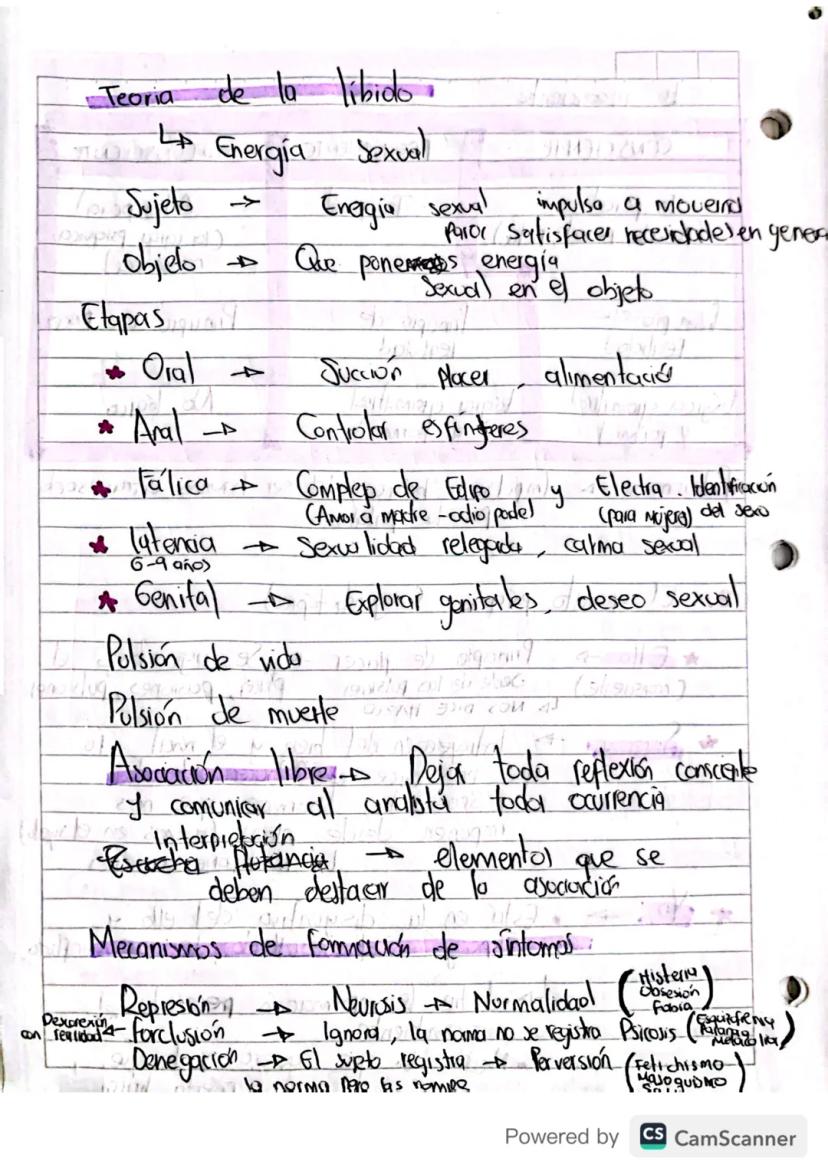 Teoria de la líbido
↳ Energía Sexual
Sujeto → Energía sexual impulsa a movernos
para satisfacer necesidades en gener
Objeto → Que ponemos energía
sexual en el objeto
Etapas
★ Oral → Succión placer, alimentació
★ Anal → Controlar esfínteres
★ Fálica → Complejo de Edipo y Electra. Identificación
(Amor a madre - odio padre) (para mujeres) del sexo
★ latencia → Sexualidad relegada, calma sexual
6-9 años
★ Genital → Explorar genitales, deseo sexual
Pulsión de vida
Pulsión de muerte
Asociación libre → Dejar toda reflexión consciente
y comunicar al analista toda ocurrencia
Interpretación
Escucha flotante → elementos que se
deben destacar de la asociación
Mecanismos de formación de síntomas:
Represión → Neurosis → Normalidad (Histeria
Obsesión
Fobia)
Desconexión con realidad ← Forclusión → Ignora, la norma no se registra Psicosis (Esquizofrenia
Paranoia
Melancolía)
Denegación → El sujeto registra → Perversión (Fetichismo
la norma pero las rompe Masoquismo
Powered by CS CamScanner